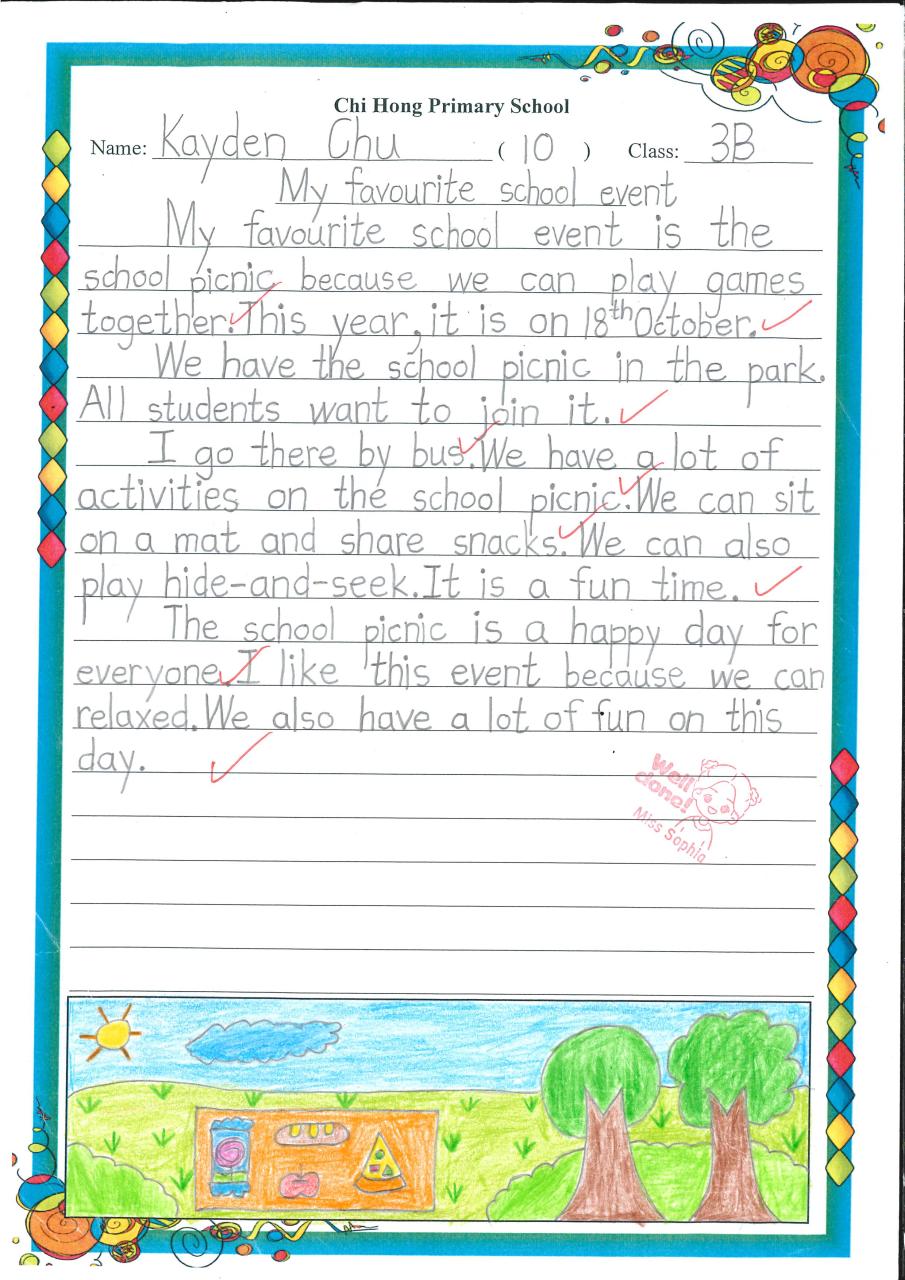 Chi Hong Primary School
Name: Kayden Chu ( 10 ) Class: 3B
My favourite school event
My favourite school event is the
school picnic because we can play games
together. This year, it is on 18th October.
We have the school picnic in the park.
All students want to join it.
I go there by bus. We have a lot of
activities on the school picnic. We can sit
on a mat and share snacks. We can also
play hide-and-seek. It is a fun time.
The school picnic is a happy day for
everyone. I like this event because we can
relaxed. We also have a lot of fun on this
day.
Well
done!
Miss Sophia